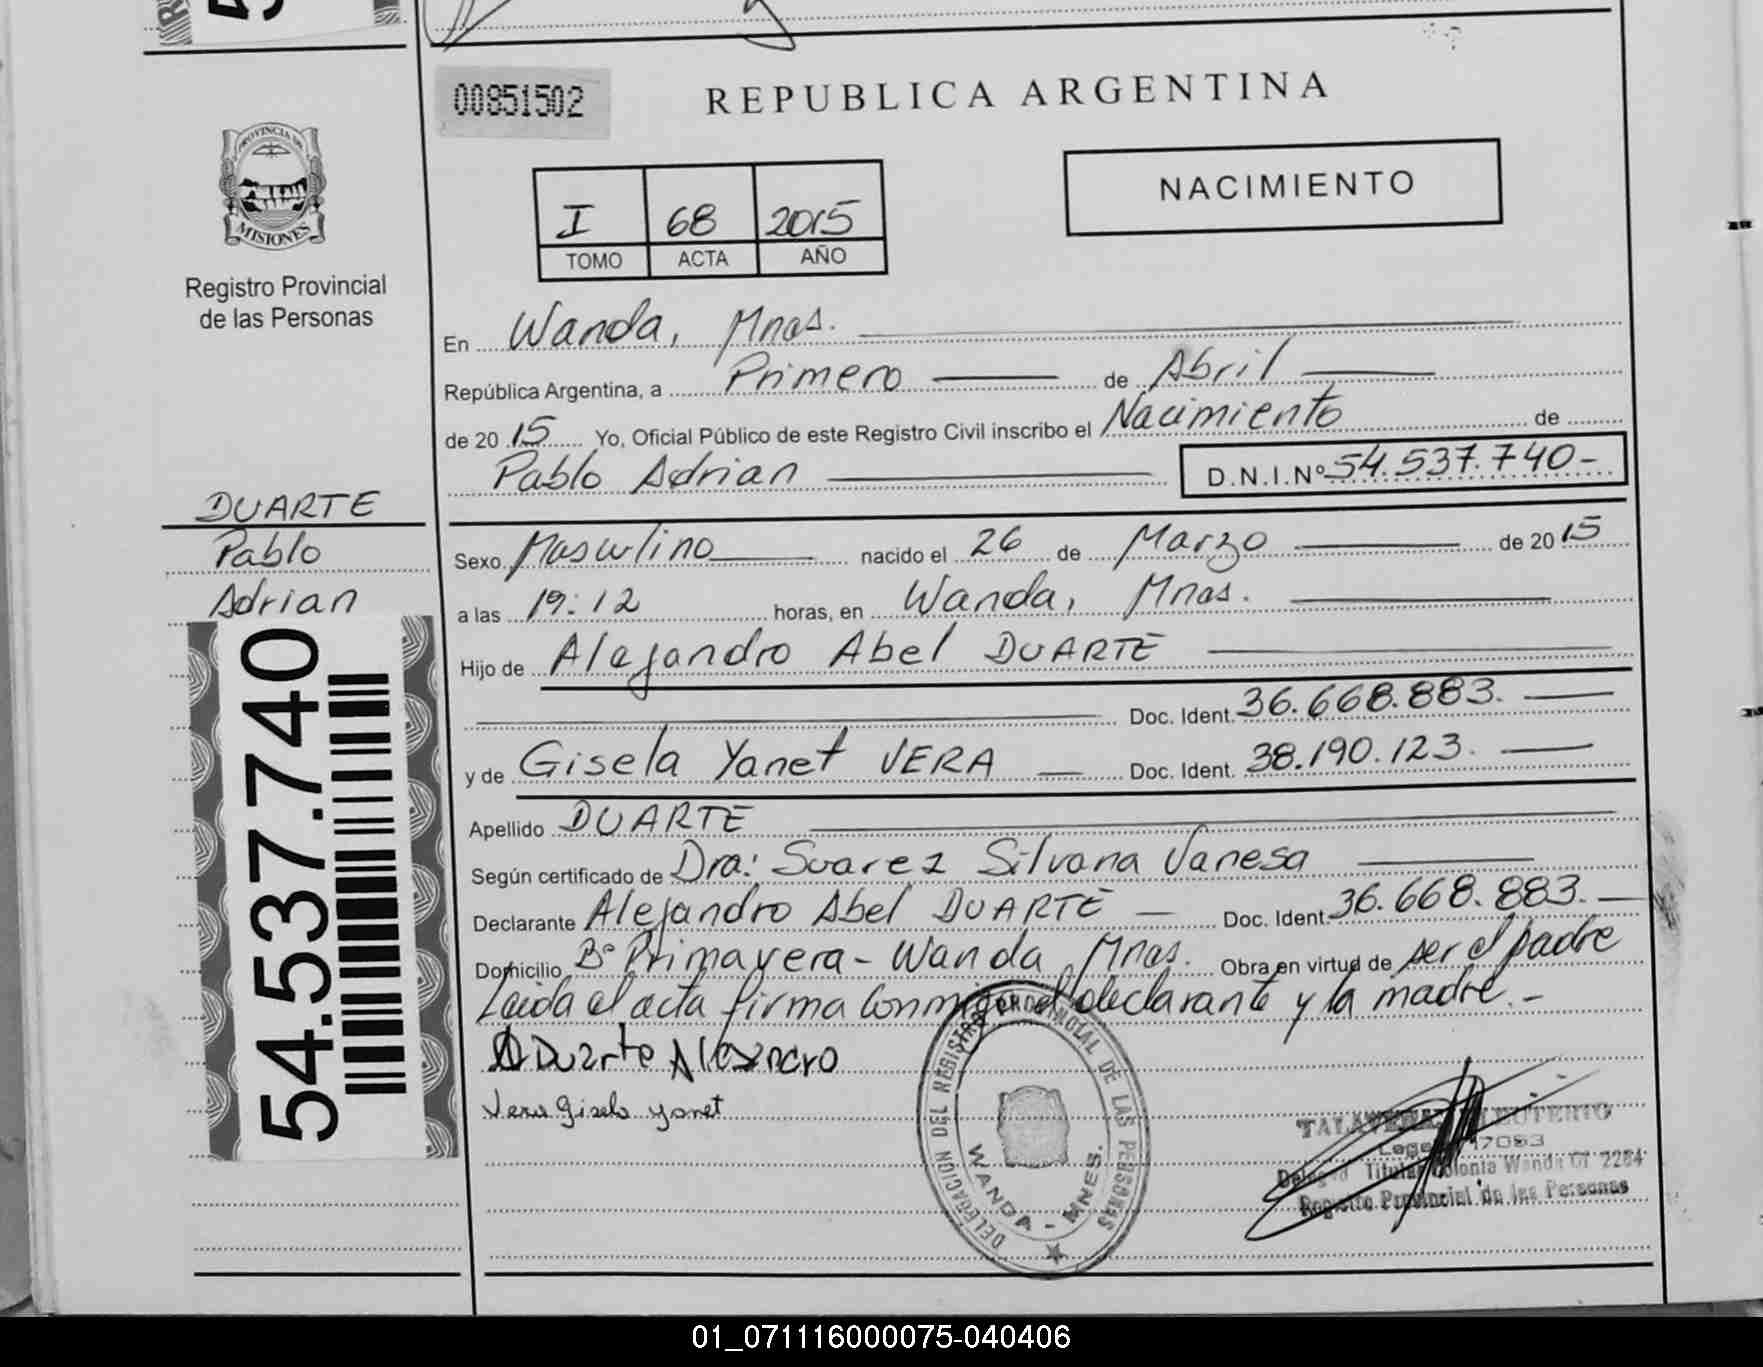 00851502
REPUBLICA ARGENTINA
NACIMIENTO
I 68 2015
TOMO ACTA AÑO
PROVINCIA DE
MISIONES
Registro Provincial
de las Personas
En Wanda, Mnas.
República Argentina, a Primero de Abril
de 20 15 Yo, Oficial Público de este Registro Civil inscribo el Nacimiento de
Pablo Adrian D.N.I.Nº 54.537.740-
DUARTE
Pablo
Adrian
54.537.740
Sexo Masculino nacido el 26 de Marzo de 20 15
a las 19:12 horas, en Wanda, Mnas.
Hijo de Alejandro Abel DUARTE
Doc. Ident. 36.668.883.
y de Gisela Yanet VERA Doc. Ident. 38.190.123.
Apellido DUARTE
Según certificado de Dra: Suarez Silvana Vanesa
Declarante Alejandro Abel DUARTE Doc. Ident. 36.668.883.
Domicilio Bº Primavera - Wanda, Mnas. Obra en virtud de ser el padre
Leida el acta firma conmigo el declarante y la madre.-
Duarte Alejandro
Vera Gisela yanet
DELEGACIÓN DEL REGISTRO PROVINCIAL DE LAS PERSONAS
WANDA - MNES.
TALAVERA ELEUTERIO
17083
Titular Colonia Wanda Of 2284
Registro Provincial de las Personas
01_071116000075-040406